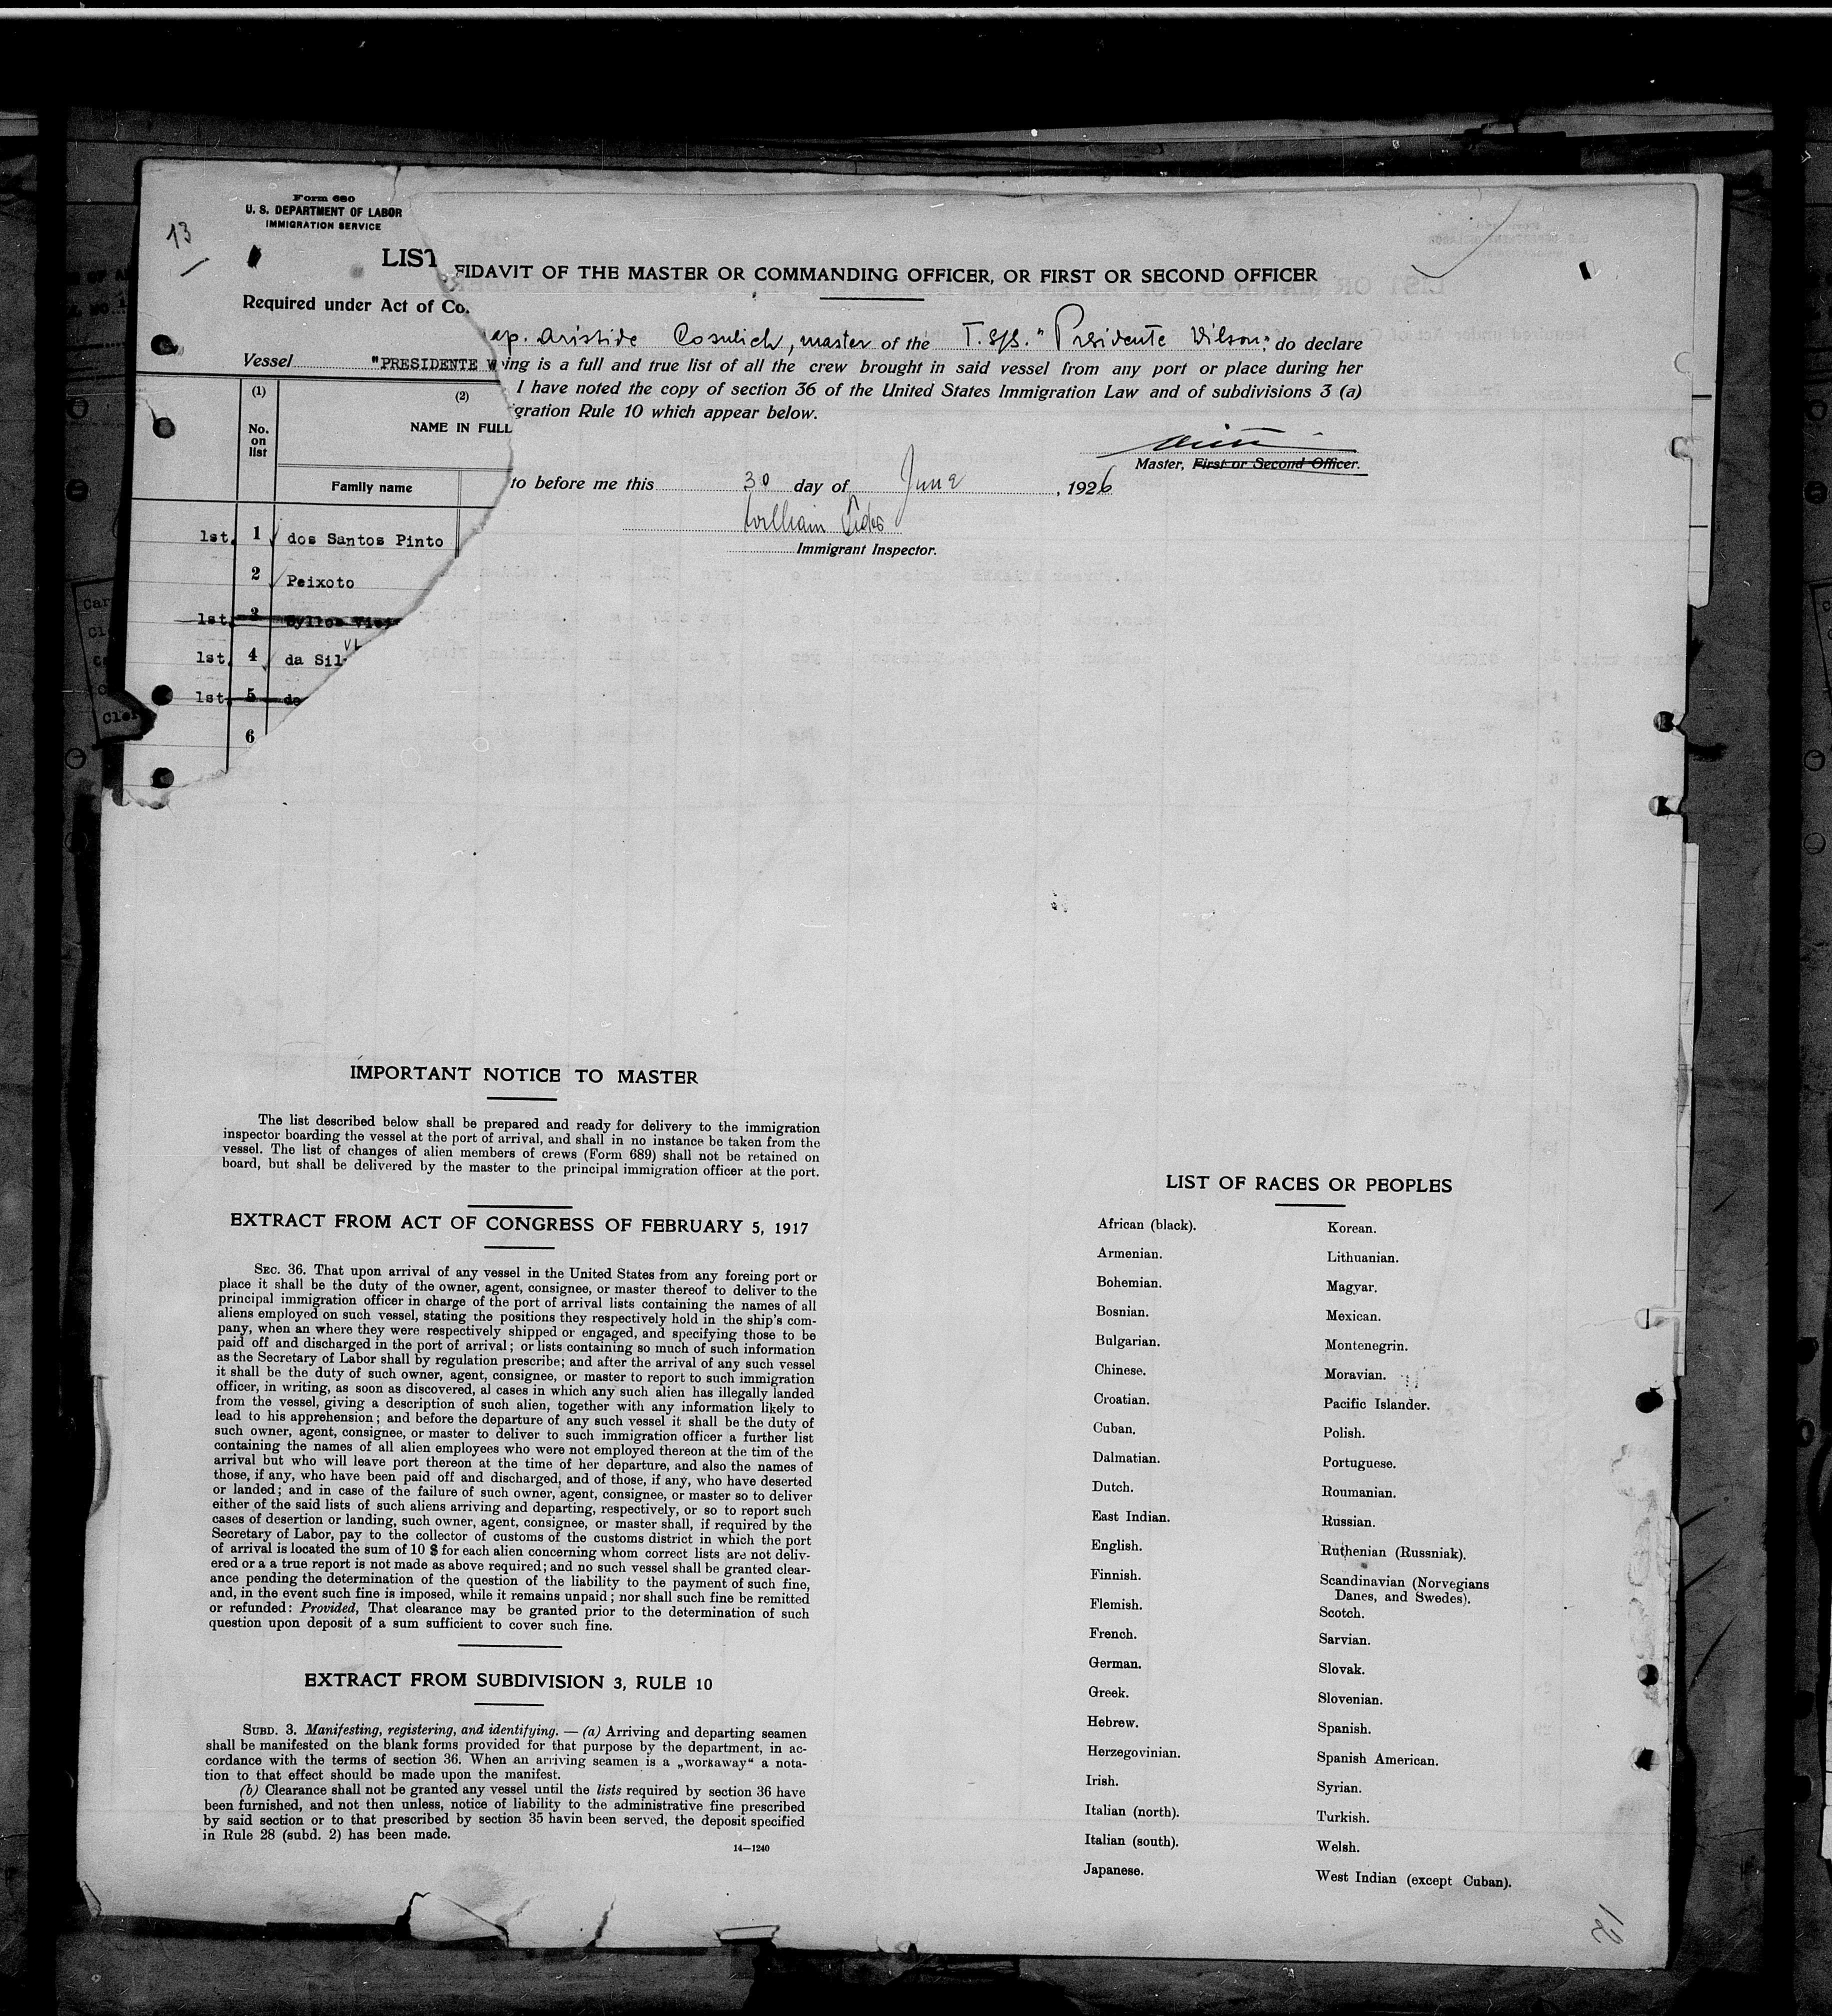 13
Form 680
U. S. DEPARTMENT OF LABOR
IMMIGRATION SERVICE
LIST
Required under Act of Co
Vessel "PRESIDENTE W
(1)
(2)
No. on list
NAME IN FULL
Family name
1st. 1 dos Santos Pinto
2 Peixoto
1st. 3
1st. 4 da Sil
1st. 5 do
6
FIDAVIT OF THE MASTER OR COMMANDING OFFICER, OR FIRST OR SECOND OFFICER
ap. Aristide Cosulich, master of the T. S/S. "Presidente Wilson", do declare
ing is a full and true list of all the crew brought in said vessel from any port or place during her
I have noted the copy of section 36 of the United States Immigration Law and of subdivisions 3 (a)
gration Rule 10 which appear below.
Master, First or Second Officer.
to before me this 30 day of June, 1926
William
Immigrant Inspector.
IMPORTANT NOTICE TO MASTER
The list described below shall be prepared and ready for delivery to the immigration
inspector boarding the vessel at the port of arrival, and shall in no instance be taken from the
vessel. The list of changes of alien members of crews (Form 689) shall not be retained on
board, but shall be delivered by the master to the principal immigration officer at the port.
EXTRACT FROM ACT OF CONGRESS OF FEBRUARY 5, 1917
SEC. 36. That upon arrival of any vessel in the United States from any foreing port or
place it shall be the duty of the owner, agent, consignee, or master thereof to deliver to the
principal immigration officer in charge of the port of arrival lists containing the names of all
aliens employed on such vessel, stating the positions they respectively hold in the ship's com-
pany, when an where they were respectively shipped or engaged, and specifying those to be
paid off and discharged in the port of arrival; or lists containing so much of such information
as the Secretary of Labor shall by regulation prescribe; and after the arrival of any such vessel
it shall be the duty of such owner, agent, consignee, or master to report to such immigration
officer, in writing, as soon as discovered, al cases in which any such alien has illegally landed
from the vessel, giving a description of such alien, together with any information likely to
lead to his apprehension; and before the departure of any such vessel it shall be the duty of
such owner, agent, consignee, or master to deliver to such immigration officer a further list
containing the names of all alien employees who were not employed thereon at the tim of the
arrival but who will leave port thereon at the time of her departure, and also the names of
those, if any, who have been paid off and discharged, and of those, if any, who have deserted
or landed; and in case of the failure of such owner, agent, consignee, or master so to deliver
either of the said lists of such aliens arriving and departing, respectively, or so to report such
cases of desertion or landing, such owner, agent, consignee, or master shall, if required by the
Secretary of Labor, pay to the collector of customs of the customs district in which the port
of arrival is located the sum of 10 $ for each alien concerning whom correct lists are not deliv-
ered or a a true report is not made as above required; and no such vessel shall be granted clear-
ance pending the determination of the question of the liability to the payment of such fine,
and, in the event such fine is imposed, while it remains unpaid; nor shall such fine be remitted
or refunded: Provided, That clearance may be granted prior to the determination of such
question upon deposit of a sum sufficient to cover such fine.
EXTRACT FROM SUBDIVISION 3, RULE 10
SUBD. 3. Manifesting, registering, and identifying. — (a) Arriving and departing seamen
shall be manifested on the blank forms provided for that purpose by the department, in ac-
cordance with the terms of section 36. When an arriving seamen is a „workaway“ a nota-
tion to that effect should be made upon the manifest.
(b) Clearance shall not be granted any vessel until the lists required by section 36 have
been furnished, and not then unless, notice of liability to the administrative fine prescribed
by said section or to that prescribed by section 35 havin been served, the deposit specified
in Rule 28 (subd. 2) has been made.
14—1240
LIST OF RACES OR PEOPLES
African (black).
Armenian.
Bohemian.
Bosnian.
Bulgarian.
Chinese.
Croatian.
Cuban.
Dalmatian.
Dutch.
East Indian.
English.
Finnish.
Flemish.
French.
German.
Greek.
Hebrew.
Herzegovinian.
Irish.
Italian (north).
Italian (south).
Japanese.
Korean.
Lithuanian.
Magyar.
Mexican.
Montenegrin.
Moravian.
Pacific Islander.
Polish.
Portuguese.
Roumanian.
Russian.
Ruthenian (Russniak).
Scandinavian (Norvegians
Danes, and Swedes).
Scotch.
Sarvian.
Slovak.
Slovenian.
Spanish.
Spanish American.
Syrian.
Turkish.
Welsh.
West Indian (except Cuban).
12